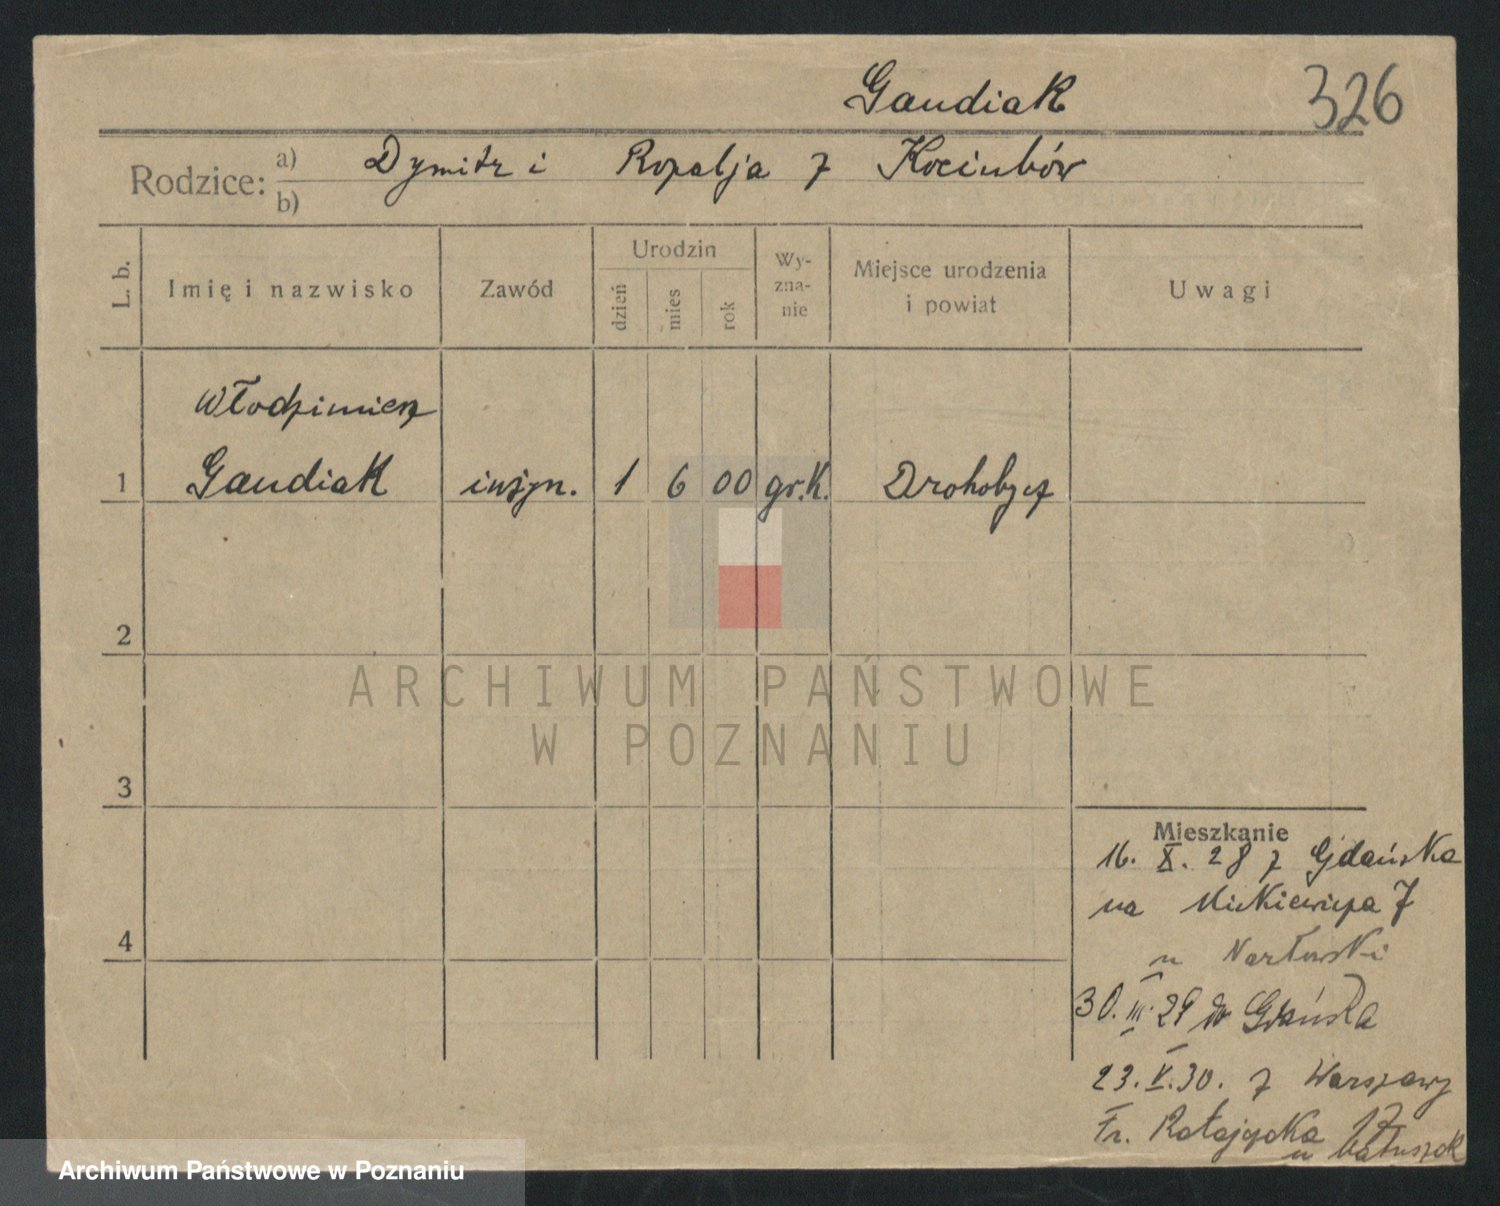 Gaudiak 326
Rodzice: a) Dymitr i Rozalja z Kociubów
b)
L. b. Imię i nazwisko Zawód Urodzin dzień mies rok Wy-zna-nie Miejsce urodzenia i powiat Uwagi
Włodzimierz
1 Gaudiak inżyn. 1 6 00 gr.K. Drohobycz
2
ARCHIWUM PAŃSTWOWE
W POZNANIU
3
Mieszkanie
16. X. 28 z Gdańska
na Mickiewicza 7
4
u
30. III. 29 do Gdańska
23. V. 30. z Warszawy
Fr. Ratajczaka 17
u
Archiwum Państwowe w Poznaniu